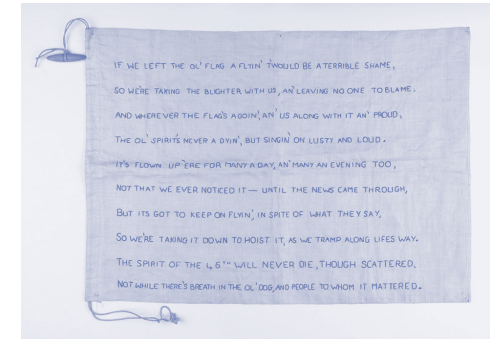 IF WE LEFT THE OL' FLAG A FLYIN' T'WOULD BE A TERRIBLE SHAME,
SO WE'RE TAKING THE BLIGHTER WITH US, AN' LEAVING NO ONE TO BLAME.
AND WHEREVER THE FLAG'S AGOIN', AN' US ALONG WITH IT AN' PROUD,
THE OL' SPIRIT'S NEVER A DYIN', BUT SINGIN' ON LUSTY AND LOUD.
IT'S FLOWN UP 'ERE FOR MANY A DAY, AN' MANY AN EVENING TOO,
NOT THAT WE EVER NOTICED IT — UNTIL THE NEWS CAME THROUGH,
BUT ITS GOT TO KEEP ON FLYIN', IN SPITE OF WHAT THEY SAY,
SO WE'RE TAKING IT DOWN TO HOIST IT, AS WE TRAMP ALONG LIFES WAY.
THE SPIRIT OF THE 46TH WILL NEVER DIE, THOUGH SCATTERED,
NOT WHILE THERE'S BREATH IN THE OL' DOG, AND PEOPLE TO WHOM IT MATTERED.